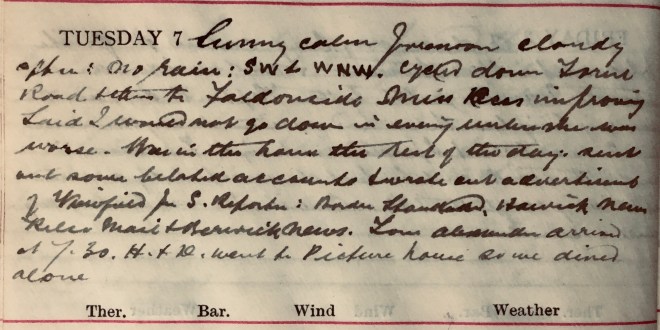 TUESDAY 7 Sunny calm forenoon cloudy
after: No rain: SW & WNW. Cycled down
Road before to Faldonside Miss Kess improving
Said I would not go down in evening unless she was
worse. Was in the house the rest of the day. sent
out some belated accounts & wrote out advertisement
of Winfield for S. Reporter: Border Standard, Hawick News
Kelso Mail & Berwick News. Tom Alexander arrived
at 7.30. H. & D. went to Picture house so we dined
alone
Ther. Bar. Wind Weather